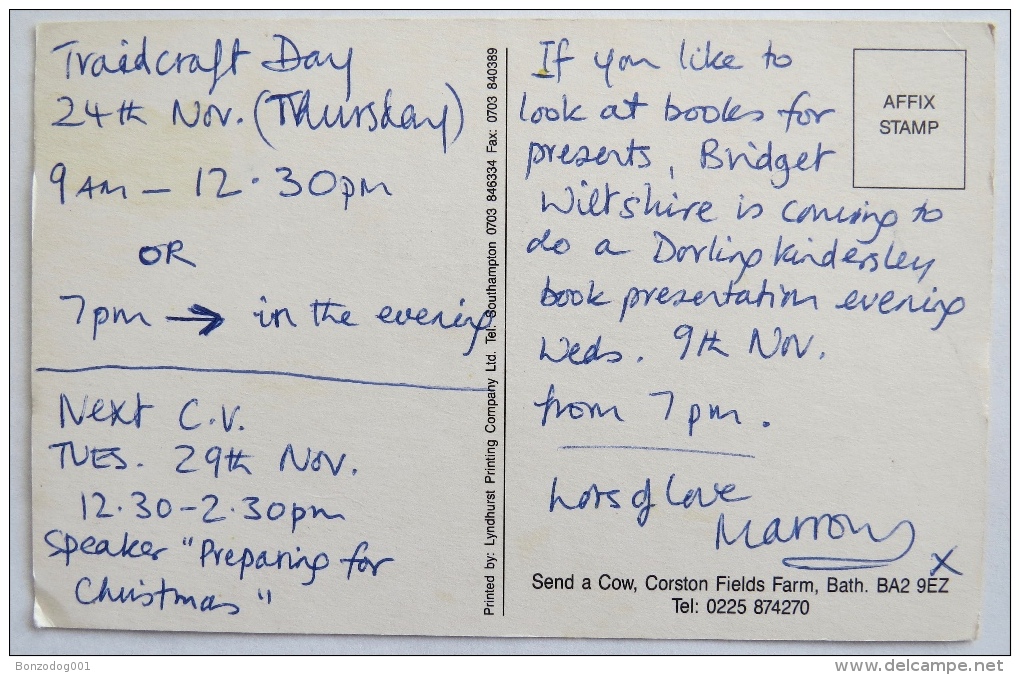 Traidcraft Day
24th Nov. (Thursday)
9AM – 12.30pm
OR
7pm → in the evening
Next C.V.
TUES. 29th Nov.
12.30–2.30pm
Speaker "Preparing for
Christmas"
Printed by: Lyndhurst Printing Company Ltd. Tel: Southampton 0703 846334 Fax: 0703 840389
If you like to
look at books for
presents, Bridget
Wiltshire is coming to
do a Dorling Kindersley
book presentation evening
Weds. 9th Nov.
from 7pm.
Lots of Love
X
AFFIX
STAMP
Send a Cow, Corston Fields Farm, Bath. BA2 9EZ
Tel: 0225 874270
Bonzodog001
www.delcampe.net